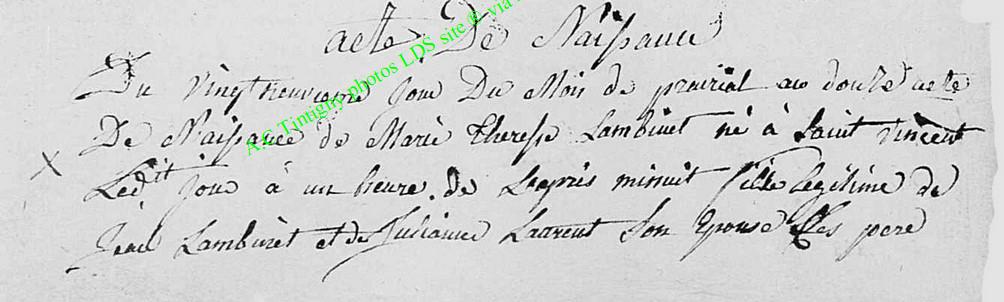 acte De Naissance
Du vingt neuvieme jour Du Mois de prairial an douze acte
De Naissance de Marie Therese Lambinet né à Saint vincent
Ledit jour à un heure de Lapris minuit fille Legitime de
Jean Lambinet et de Julianne Laurent Son Epouse Les pere
A.C Tintigny photos LDS site © via